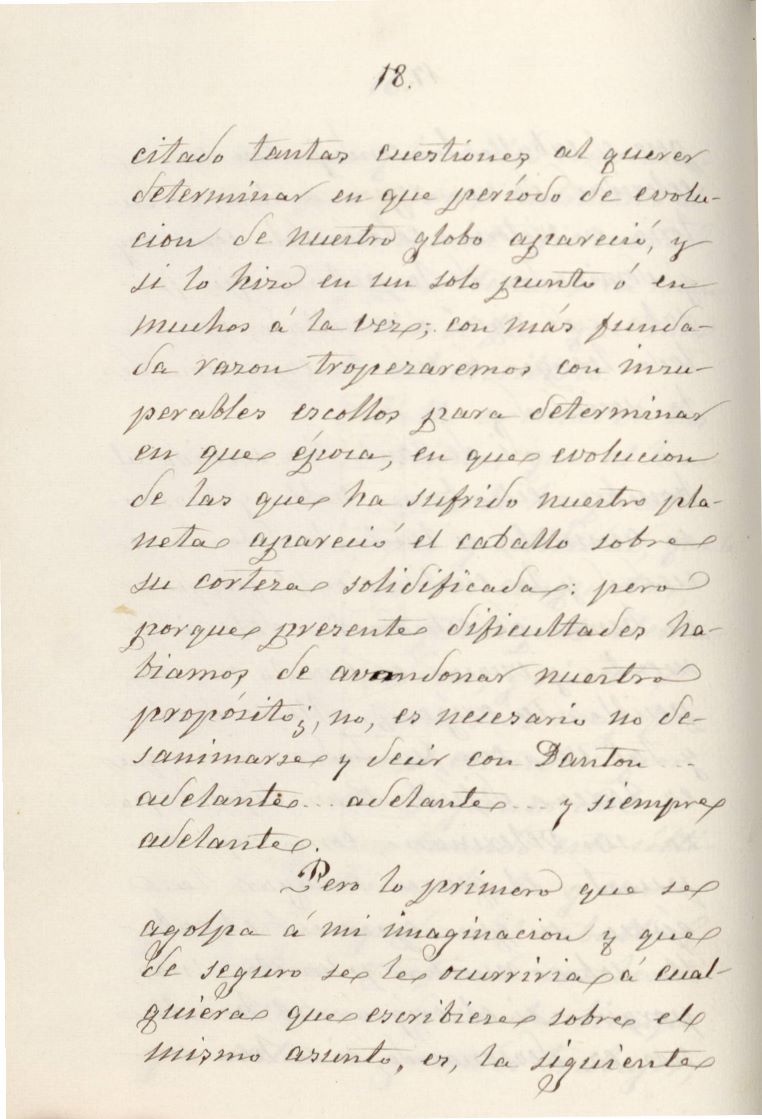 18.
citado tantas cuestiones al querer
determinar en que período de evolu-
cion de nuestro globo apareció, y
si lo hizo en un solo punto ó en
muchos á la vez; con más funda-
da razon tropezaremos con insu-
perables escollos para determinar
en que época, en que evolucion
de las que ha sufrido nuestro pla-
neta apareció el caballo sobre
su corteza solidificada: pero
porque presente dificultades ha-
biamos de avandonar nuestro
propósito; no, es necesario no de-
sanimarse y decir con Danton...
adelante... adelante... y siempre
adelante.
Pero lo primero que se
agolpa á mi imaginacion y que
de seguro se le ocurriria á cual-
quiera que escribiese sobre el
mismo asunto, es, la siguiente